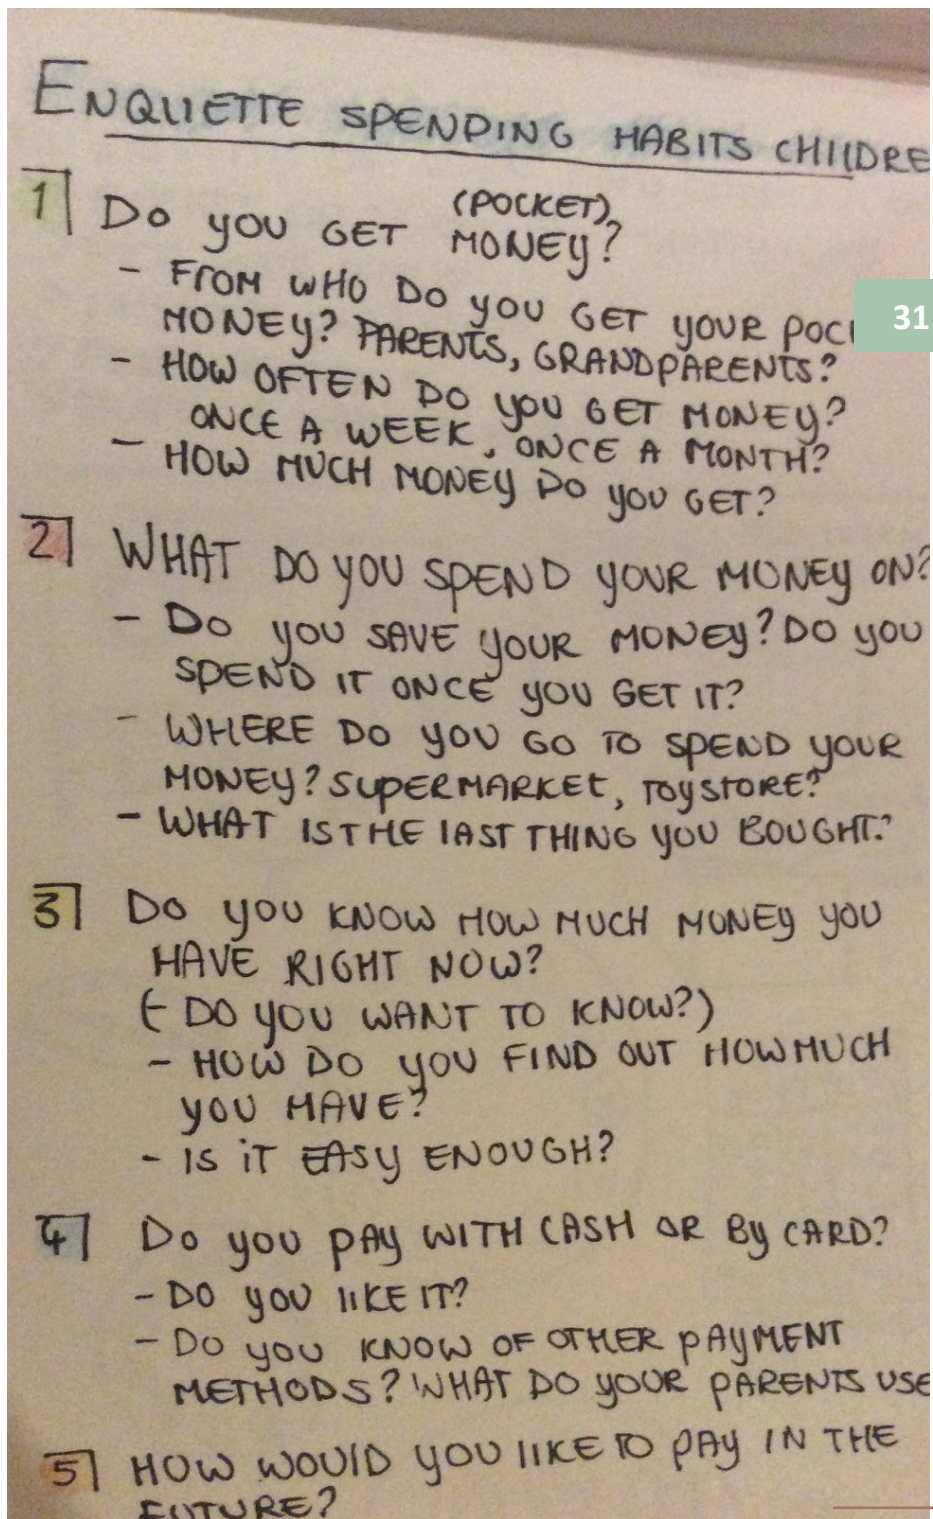 ENQUIETTE SPENDING HABITS CHILDRE
1 DO YOU GET (POCKET) MONEY?
- FROM WHO DO YOU GET YOUR POC
31
MONEY? PARENTS, GRANDPARENTS?
- HOW OFTEN DO YOU GET MONEY?
ONCE A WEEK, ONCE A MONTH?
- HOW MUCH MONEY DO YOU GET?
2 WHAT DO YOU SPEND YOUR MONEY ON?
- DO YOU SAVE YOUR MONEY? DO YOU
SPEND IT ONCE YOU GET IT?
- WHERE DO YOU GO TO SPEND YOUR
MONEY? SUPERMARKET, TOYSTORE?
- WHAT IS THE LAST THING YOU BOUGHT?
3 DO YOU KNOW HOW MUCH MONEY YOU
HAVE RIGHT NOW?
(- DO YOU WANT TO KNOW?)
- HOW DO YOU FIND OUT HOW MUCH
YOU HAVE?
- IS IT EASY ENOUGH?
4 DO YOU PAY WITH CASH OR BY CARD?
- DO YOU LIKE IT?
- DO YOU KNOW OF OTHER PAYMENT
METHODS? WHAT DO YOUR PARENTS USE
5 HOW WOULD YOU LIKE TO PAY IN THE
FUTURE?